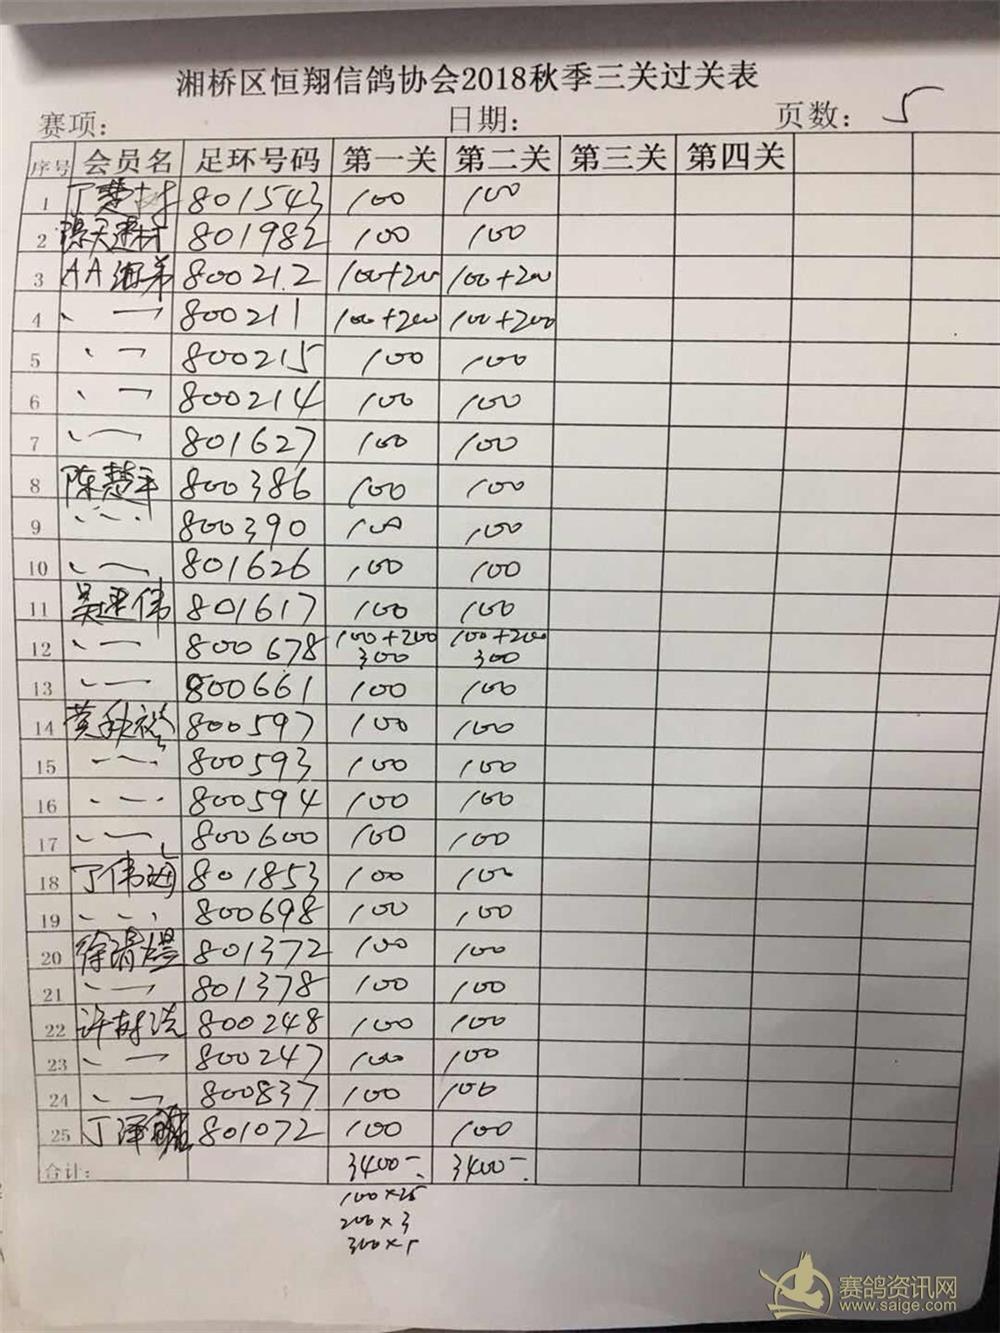 湘桥区恒翔信鸽协会2018秋季三关过关表
赛项: 日期: 页数: 5
序号 会员名 足环号码 第一关 第二关 第三关 第四关
1 丁楚 801543 100 100
2 建材 801982 100 100
3 AA 弟 800212 100+200 100+200
4 800211 100+200 100+200
5 800215 100 100
6 800214 100 100
7 801627 100 100
8 陈楚平 800386 100 100
9 800390 100 100
10 801626 100 100
11 吴建伟 801617 100 100
12 800678 100+200 300 100+200 300
13 800661 100 100
14 黄秋裕 800597 100 100
15 800593 100 100
16 800594 100 100
17 800600 100 100
18 丁伟海 801853 100 100
19 800698 100 100
20 徐清煜 801372 100 100
21 801378 100 100
22 许 800248 100 100
23 800247 100 100
24 800837 100 100
25 丁泽 801072 100 100
合计: 3400 3400
100×25
200×3
300×1
赛鸽资讯网
www.saige.com